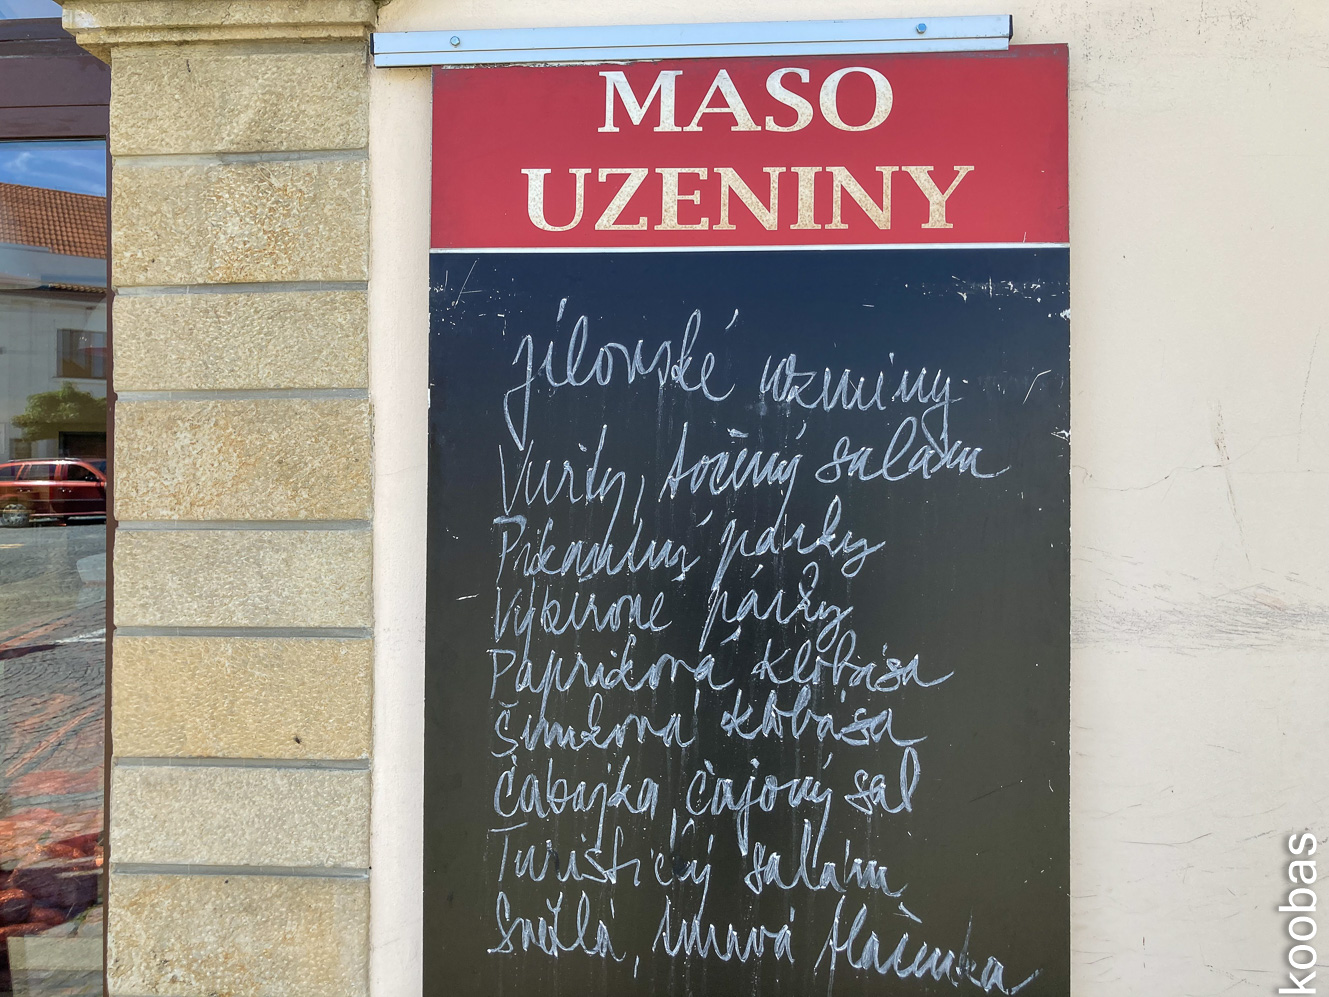 MASO
UZENINY
Jílovské uzeniny
Vuřty, točený salám
Pikantní párky
Výběrové párky
Papriková klobása
Šunková klobása
Čabajka, čajový sal
Turistický salám
Světlá, tmavá tlačenka
koobas